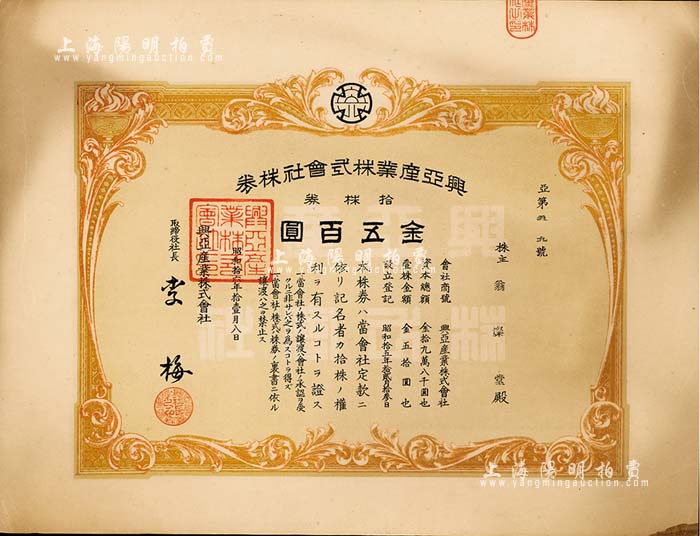 上海陽明拍賣
www.yangmingauction.com
興亞産業株式會社株券
拾株券
金五百圓
亞第
九號
株主 翁 燦 堂 殿
會社商號 興亞産業株式會社
資本總額 金拾九萬八千圓也
壹株金額 金五拾圓也
設立登記 昭和拾五年拾貳月拾參日
本株券ハ當會社定款ニ
依リ記名者カ拾株ノ權
利ヲ有スルコトヲ證ス
一當會社ノ株式ノ讓渡ハ會社ノ承認ヲ受
クルニ非サレハ之ヲ爲スコトヲ得ズ
當會社ノ株式ハ株券ノ裏書ニ依ル
讓渡ハ之ヲ禁止ス
昭和拾六年拾壹月八日
興亞産業株式會社
取締役社長 李 梅
興亞産業株式會社
上海陽明拍賣
www.yangmingauction.com